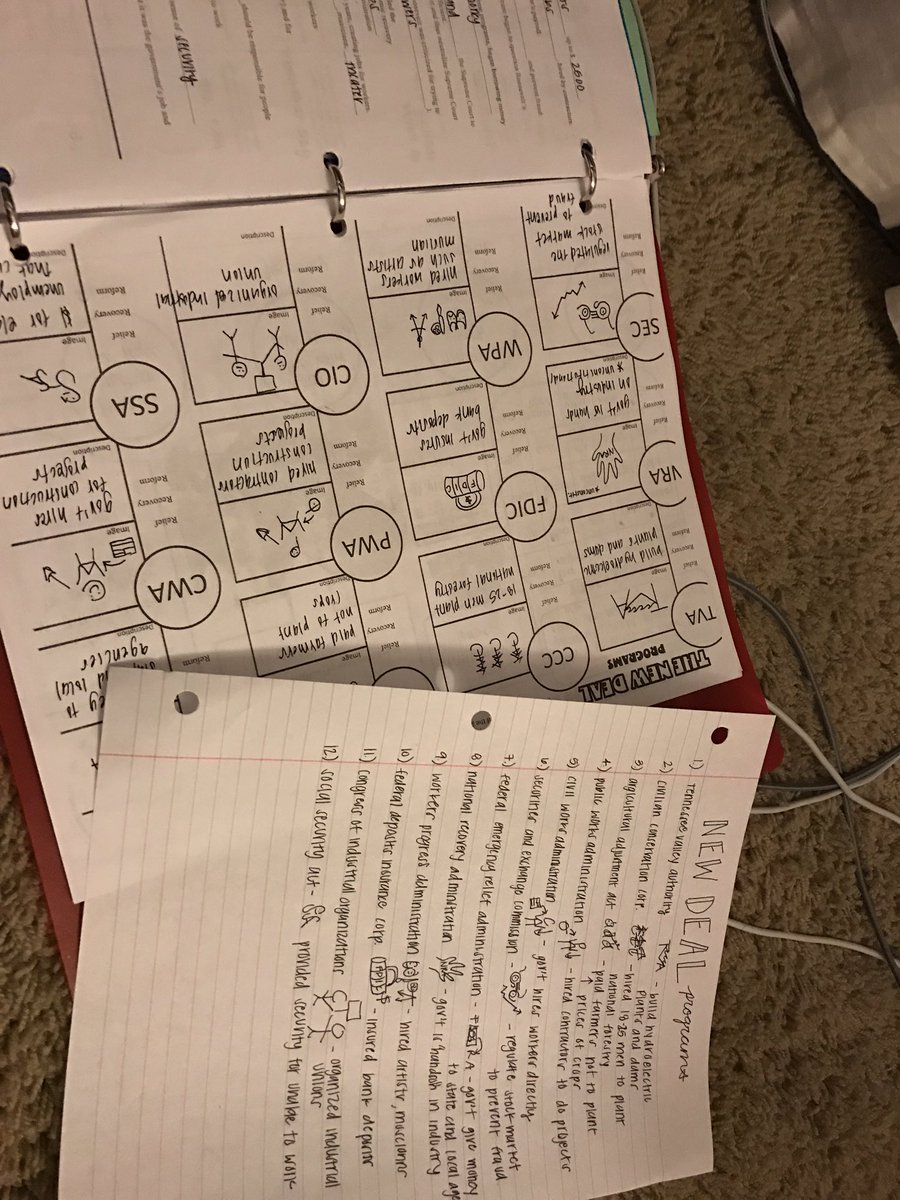 NEW DEAL programs
1) Tennessee valley authority - build hydroelectric
plants and dams
2) civilian conservation corp. - hired 18-25 men to plant
national forestry
3) argicultural adjustment act - paid farmers not to plant
↑ prices of crops
4) public works administration - hired contractors to do projects
5) civil works administration - gov't hires workers directly
6) securities and exchange commission - regulate stock market
to prevent fraud
7) federal emergency relief administration - gov't give money
to state and local age
8) national recovery administration - gov't is handson in industry
9) workers progress administration - hired artists, musicians
10) federal deposits insurance corp. - insured bank deposits
11) congress of industrial organizations - organized industrial
unions
12) social security act - provided security for unable to work
THE NEW DEAL
PROGRAMS
TVA
Relief
Recovery
Reform
Image
Description
build hydroelectric
plants and dams
CCC
Relief
Recovery
Reform
Image
Description
18-25 men plant
national forestry
Relief
Recovery
Reform
Image
Description
paid farmers
not to plant
crops
Reform
Description
local
agencies
NRA
Relief
Recovery
Reform
Image
Description
gov't is hands
on industry
* unconstitutional
FDIC
Relief
Recovery
Reform
Image
FDIC
Description
gov't insures
bank deposits
PWA
Relief
Recovery
Reform
Image
Description
hired contractors
construction
projects
CWA
Relief
Recovery
Reform
Image
Description
gov't hires
for construction
projects
SEC
Relief
Recovery
Reform
Image
Description
regulated the
stock market
to prevent
fraud
WPA
Relief
Recovery
Reform
Image
Description
hired workers
such as artists
musician
CIO
Relief
Recovery
Reform
Image
Description
organized industrial
union
SSA
Relief
Recovery
Reform
Image
Description
for eld
unemploy
up to $ 2500
the Supreme Court to
should be responsible for people
security
it was the government's job and